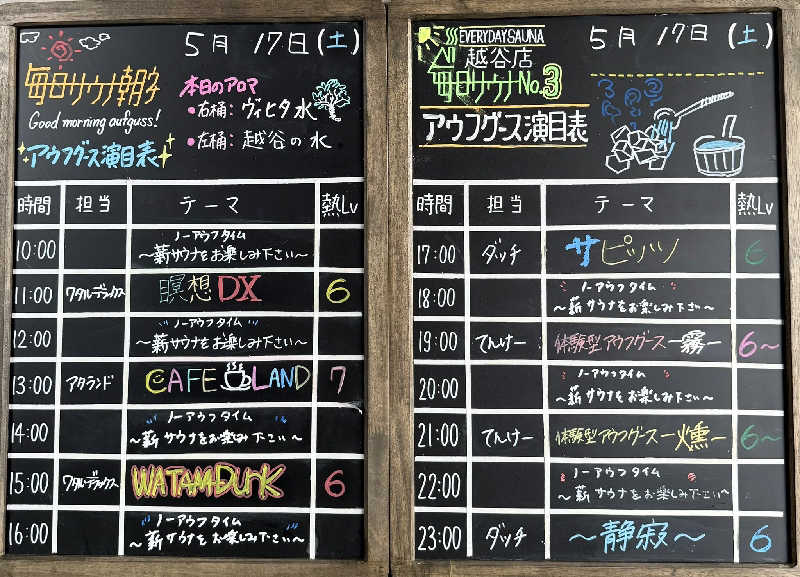 5月 17日(土)
毎日サウナ朝夕
Good morning aufguss!
アウフグース演目表
本日のアロマ
・右桶: ヴィヒタ水
・左桶: 越谷の水
時間 担当 テーマ 熱Lv
10:00 ノーアウフタイム
〜薪サウナをお楽しみ下さい〜
11:00 ワタルデラックス 瞑想DX 6
12:00 ノーアウフタイム
〜薪サウナをお楽しみ下さい〜
13:00 アタランド CAFE LAND 7
14:00 ノーアウフタイム
〜薪サウナをお楽しみ下さい〜
15:00 ワタルデラックス WATAM-DUNK 6
16:00 ノーアウフタイム
〜薪サウナをお楽しみ下さい〜
EVERYDAY SAUNA
越谷店
毎日サウナNo.3
アウフグース演目表
5月 17日(土)
時間 担当 テーマ 熱Lv
17:00 ダッチ サピッツ 6
18:00 ノーアウフタイム
〜薪サウナをお楽しみ下さい〜
19:00 てんけー 体験型アウフグース―霧― 6〜
20:00 ノーアウフタイム
〜薪サウナをお楽しみ下さい〜
21:00 てんけー 体験型アウフグース―燻― 6〜
22:00 ノーアウフタイム
〜薪サウナをお楽しみ下さい〜
23:00 ダッチ 〜静寂〜 6